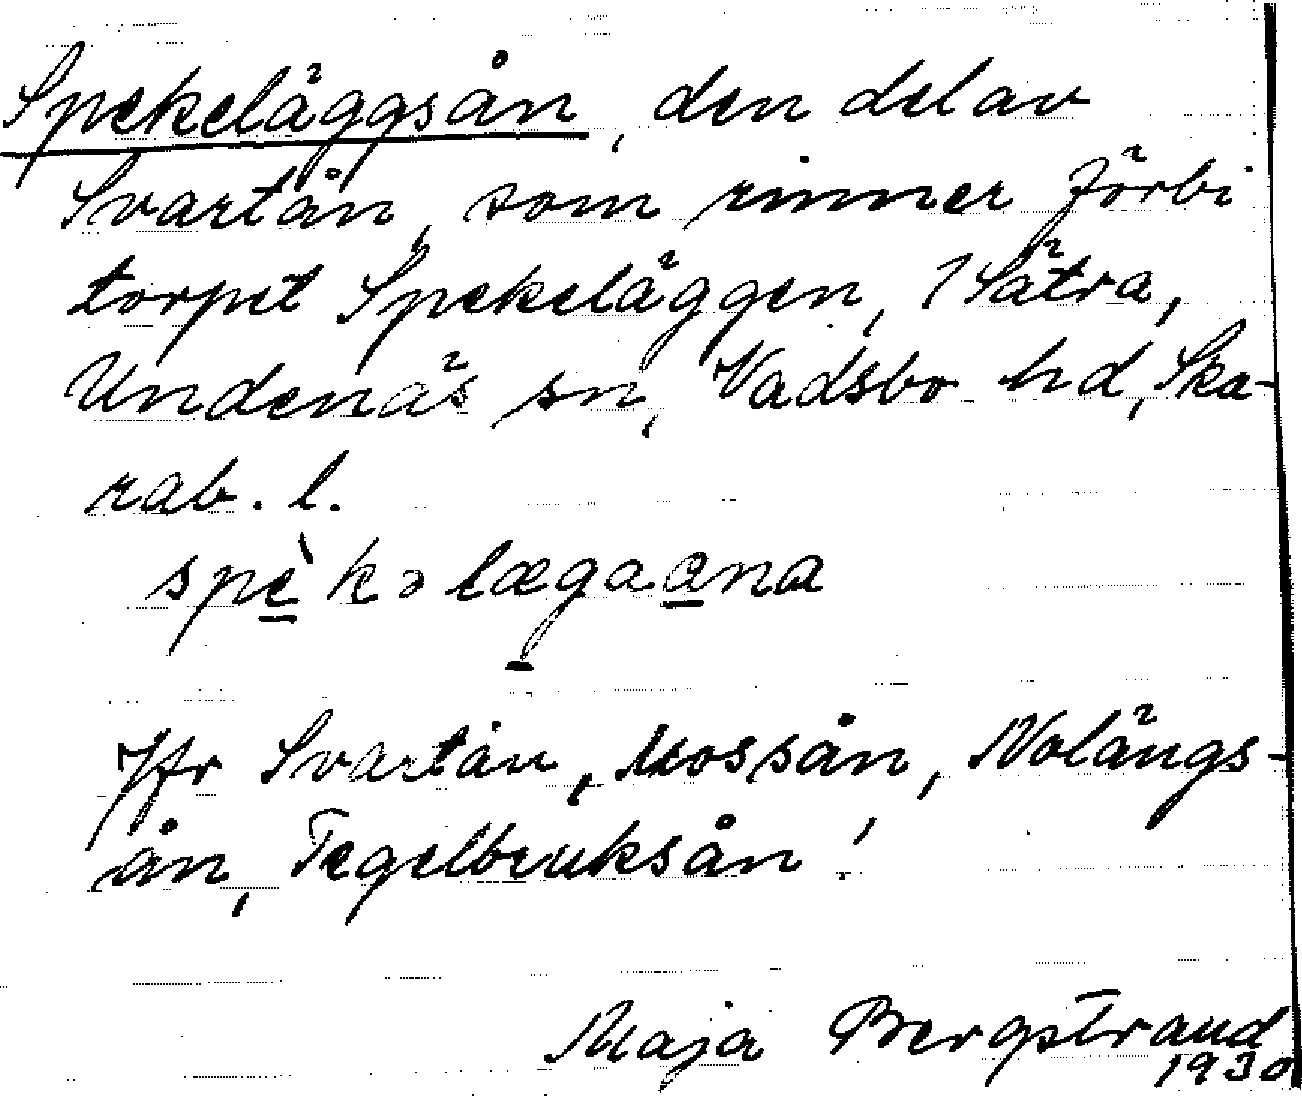 Spekeläggsån, den del av
Svartån, som rinner förbi
torpet Spekeläggen, 1 Sätra,
Undenäs sn, Vadsbo hd, Ska-
rab. l.
spè̱kəlægaa̱na
Jfr Svartån, Mossån, Nolängs-
ån, Tegelbruksån!
Maja Bergstrand
1930